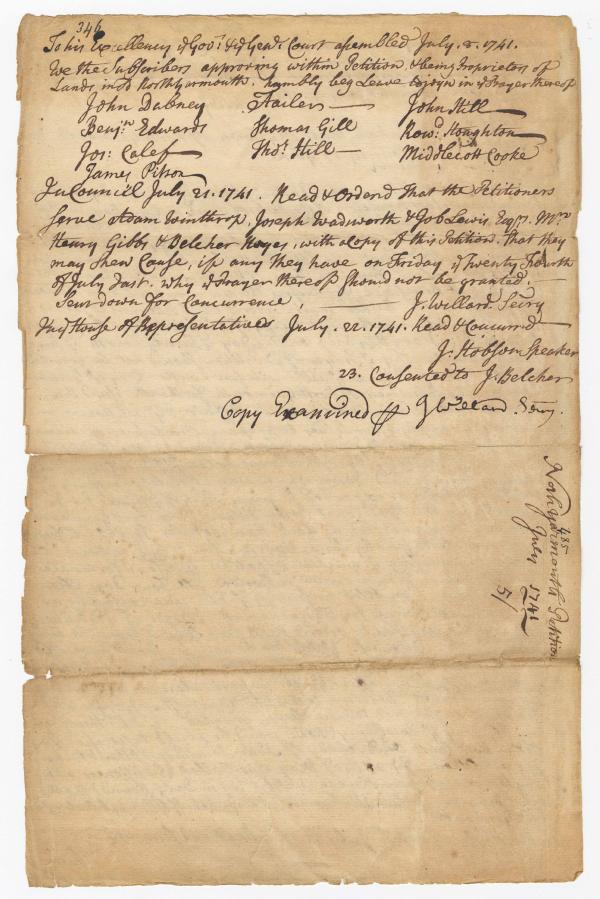 346
To his Excellency & yͤ Govͬ: & yͤ Genˡ: Court assembled July. 2. 1741.
We the Subscribers approving within Petition & being Proprietors of
Lands in sᵈ Northyarmouth, humbly beg Leave to joyn in yͤ Prayer thereof
John Dabney Tailer John Hill
Benjⁿ: Edwards Thomas Gill Rowᵈ: Houghton
Jos: Calef Thoˢ: Hill Middlecott Cooke
James Pitson
In Council July 21. 1741. Read & Orderd That the Petitioners
serve Adam Winthrop, Joseph Wadsworth & Job Lewis, Esqʳˢ. Mʳˢ
Henry Gibbs & Belcher Noyes, with a Copy of this Petition. That they
may shew Cause, if any they have on Friday yͤ Twenty Fourth
of July Inst. why yͤ Prayer thereof should not be granted.
Sent down for Concurrence, J. Willard Secry
In yͤ House of Representatives July. 22. 1741. Read & Concurrd
J. Hobson Speaker
23. Consented to J. Belcher
Copy Examined ⅌ J Willard Secry.
485
North Yarmouth Petition
July 1741
5/